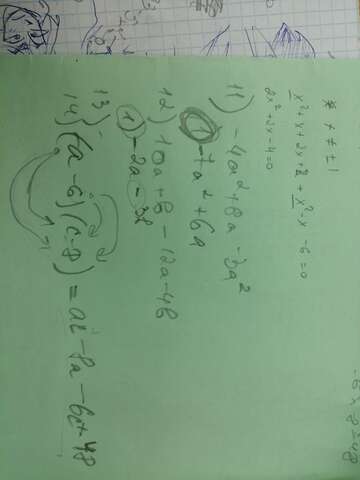 * x ≠ ±1
x² + x + 2x + 2 + x² - x - 6 = 0
2x² + 2x - 4 = 0
11) -4a² + 8a - 3a²
-7a² + 6a
12) 10a + 8 - 12a - 48
1) -2a - 38
13)
14) (a - 6)(c - 8) = ac - 8a - 6c + 48
-6 × 8 = 48